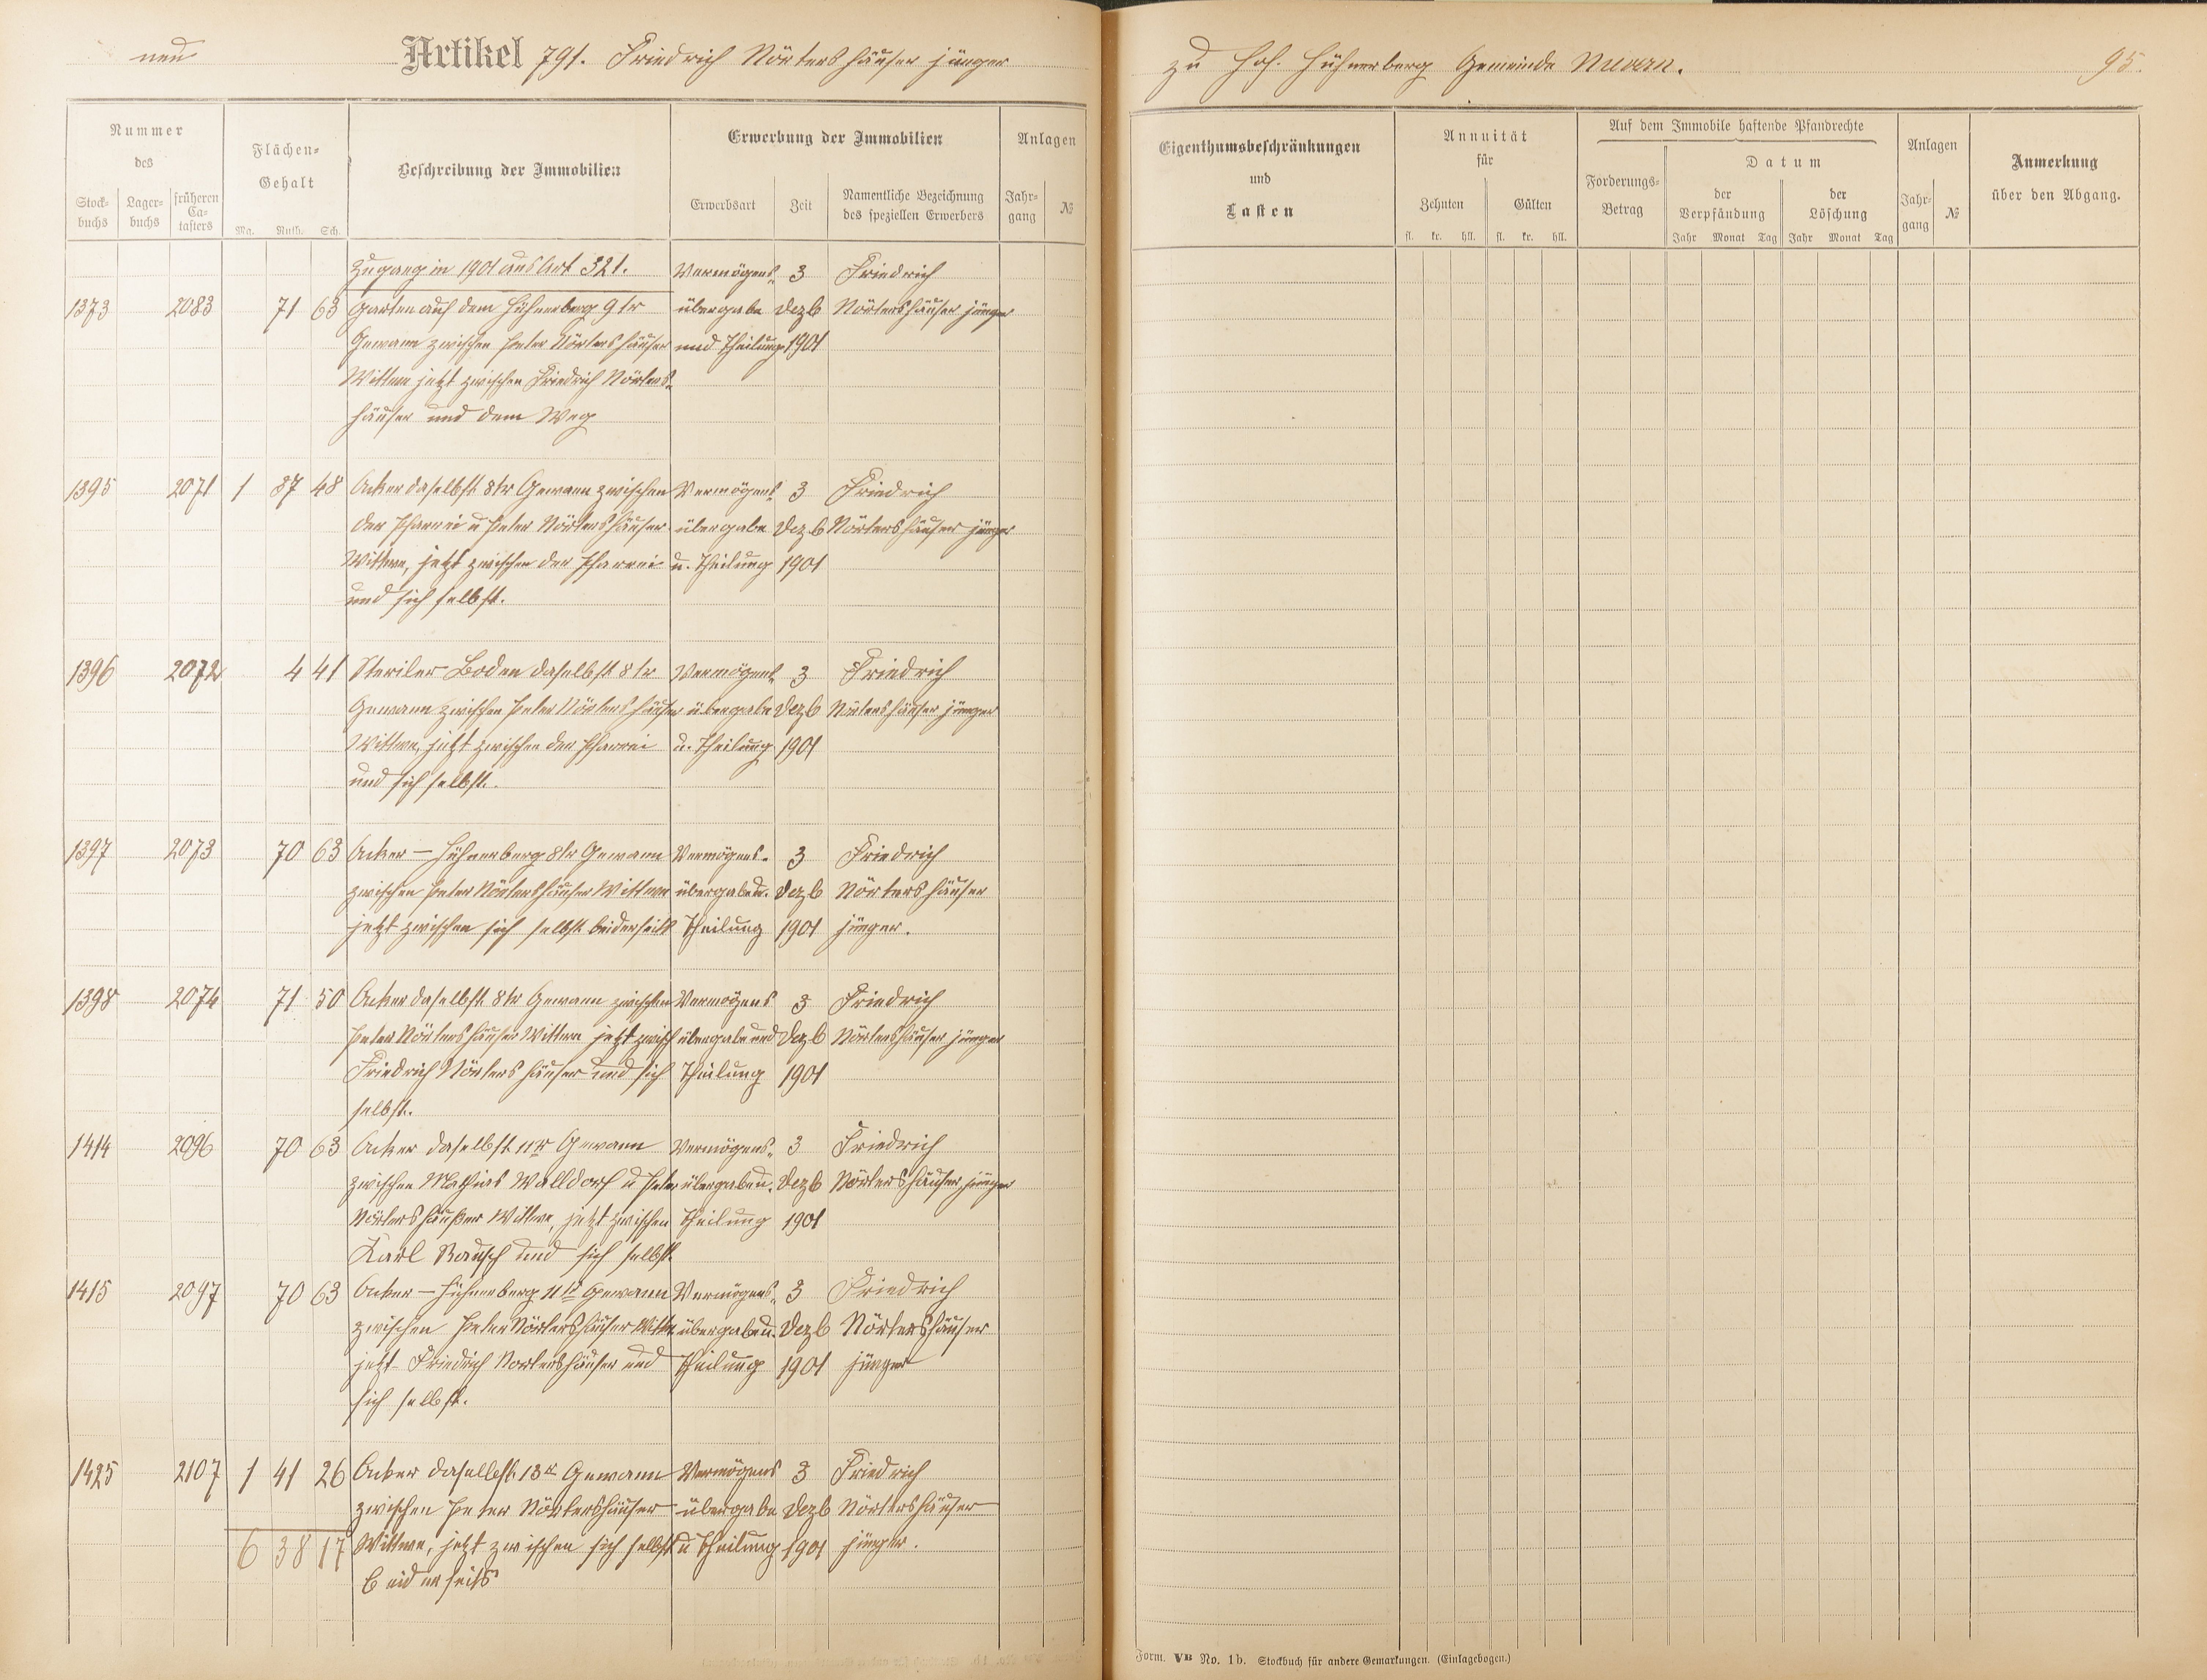 neu Artikel 791. Friedrich Nörtershäuser jünger
zu Hof Hühnerberg Gemeinde Nievern. 95.
Nummer
des
Stock-
buchs
Lager-
buchs
früheren
Ca-
tasters
Flächen-
Gehalt
Mg. Ruth. Sch.
Beschreibung der Immobilien
Erwerbung der Immobilien
Erwerbsart Zeit
Namentliche Bezeichnung
des speziellen Erwerbers
Anlagen
Jahr-
gang
№
Zugang in 1901 aus Art 321. Vermögens- 3 Friedrich
1373 2083 71 63 Garten auf dem Hühnerberg 9tr übergabe Dezb Nörtershäuser jünger
Gewann zwischen Peter Nörtershäuser und Theilung 1901
Wittwe jetzt zwischen Friedrich Nörters-
häuser und dem Weg
1395 2071 1 87 48 Acker daselbst 8tr Gewann zwischen Vermögens- 3 Friedrich
der Pfarrei u Peter Nörtershäuser übergabe Dezb Nörtershäuser jünger
Wittwe, jetzt zwischen der Pfarrei u. Theilung 1901
und sich selbst.
1396 2072 4 41 Steriler Boden daselbst 8tr Vermögens- 3 Friedrich
Gewann zwischen Peter Nörtershäuser übergabe Dezb Nörtershäuser jünger
Wittwe, jetzt zwischen der Pfarrei u. Theilung 1901
und sich selbst.
1397 2073 70 63 Acker – Hühnerberg 8tr Gewann Vermögens- 3 Friedrich
zwischen Peter Nörtershäuser Wittwe übergabe u. Dezb Nörtershäuser
jetzt zwischen sich selbst beiderseits Theilung 1901 jünger.
1398 2074 71 50 Acker daselbst 8tr Gewann zwischen Vermögens 3 Friedrich
Peter Nörtershäuser Wittwe jetzt zwisch übergabe und Dezb Nörtershäuser jünger
Friedrich Nörtershäuser und sich Theilung 1901
selbst.
1414 2096 70 63 Acker daselbst 11tr Gewann Vermögens- 3 Friedrich
zwischen Mathias Walldorf u Peter übergabe u. Dezb Nörtershäuser jünger
Nörtershäußer Wittwe, jetzt zwischen Theilung 1901
Karl Bausch und sich selbst
1415 2097 70 63 Acker – Hühnerberg 11tr Gewann Vermögens- 3 Friedrich
zwischen Peter Nörtershäuser Wittw übergabe u. Dezb Nörtershäuser
jetzt Friedrich Nortershäuser und Theilung 1901 jünger
sich selbst.
1425 2107 1 41 26 Acker daselbst 13tr Gewann Vermögens 3 Friedrich
zwischen Peter Nörtershäuser übergabe Dezb Nörtershäuser
6 38 17 Wittwe, jetzt zwischen sich selbst u Theilung 1901 jünger.
beiderseits
Eigenthumsbeschränkungen
und
Lasten
Annuität
für
Zehnten Gülten
fl. kr. hll. fl. kr. hll.
Auf dem Immobile haftende Pfandrechte
Forderungs-
Betrag
Datum
der
Verpfändung
der
Löschung
Jahr Monat Tag Jahr Monat Tag
Anlagen
Jahr-
gang
№
Anmerkung
über den Abgang.
Form. VB No. 1b. Stockbuch für andere Gemarkungen. (Einlagebogen.)